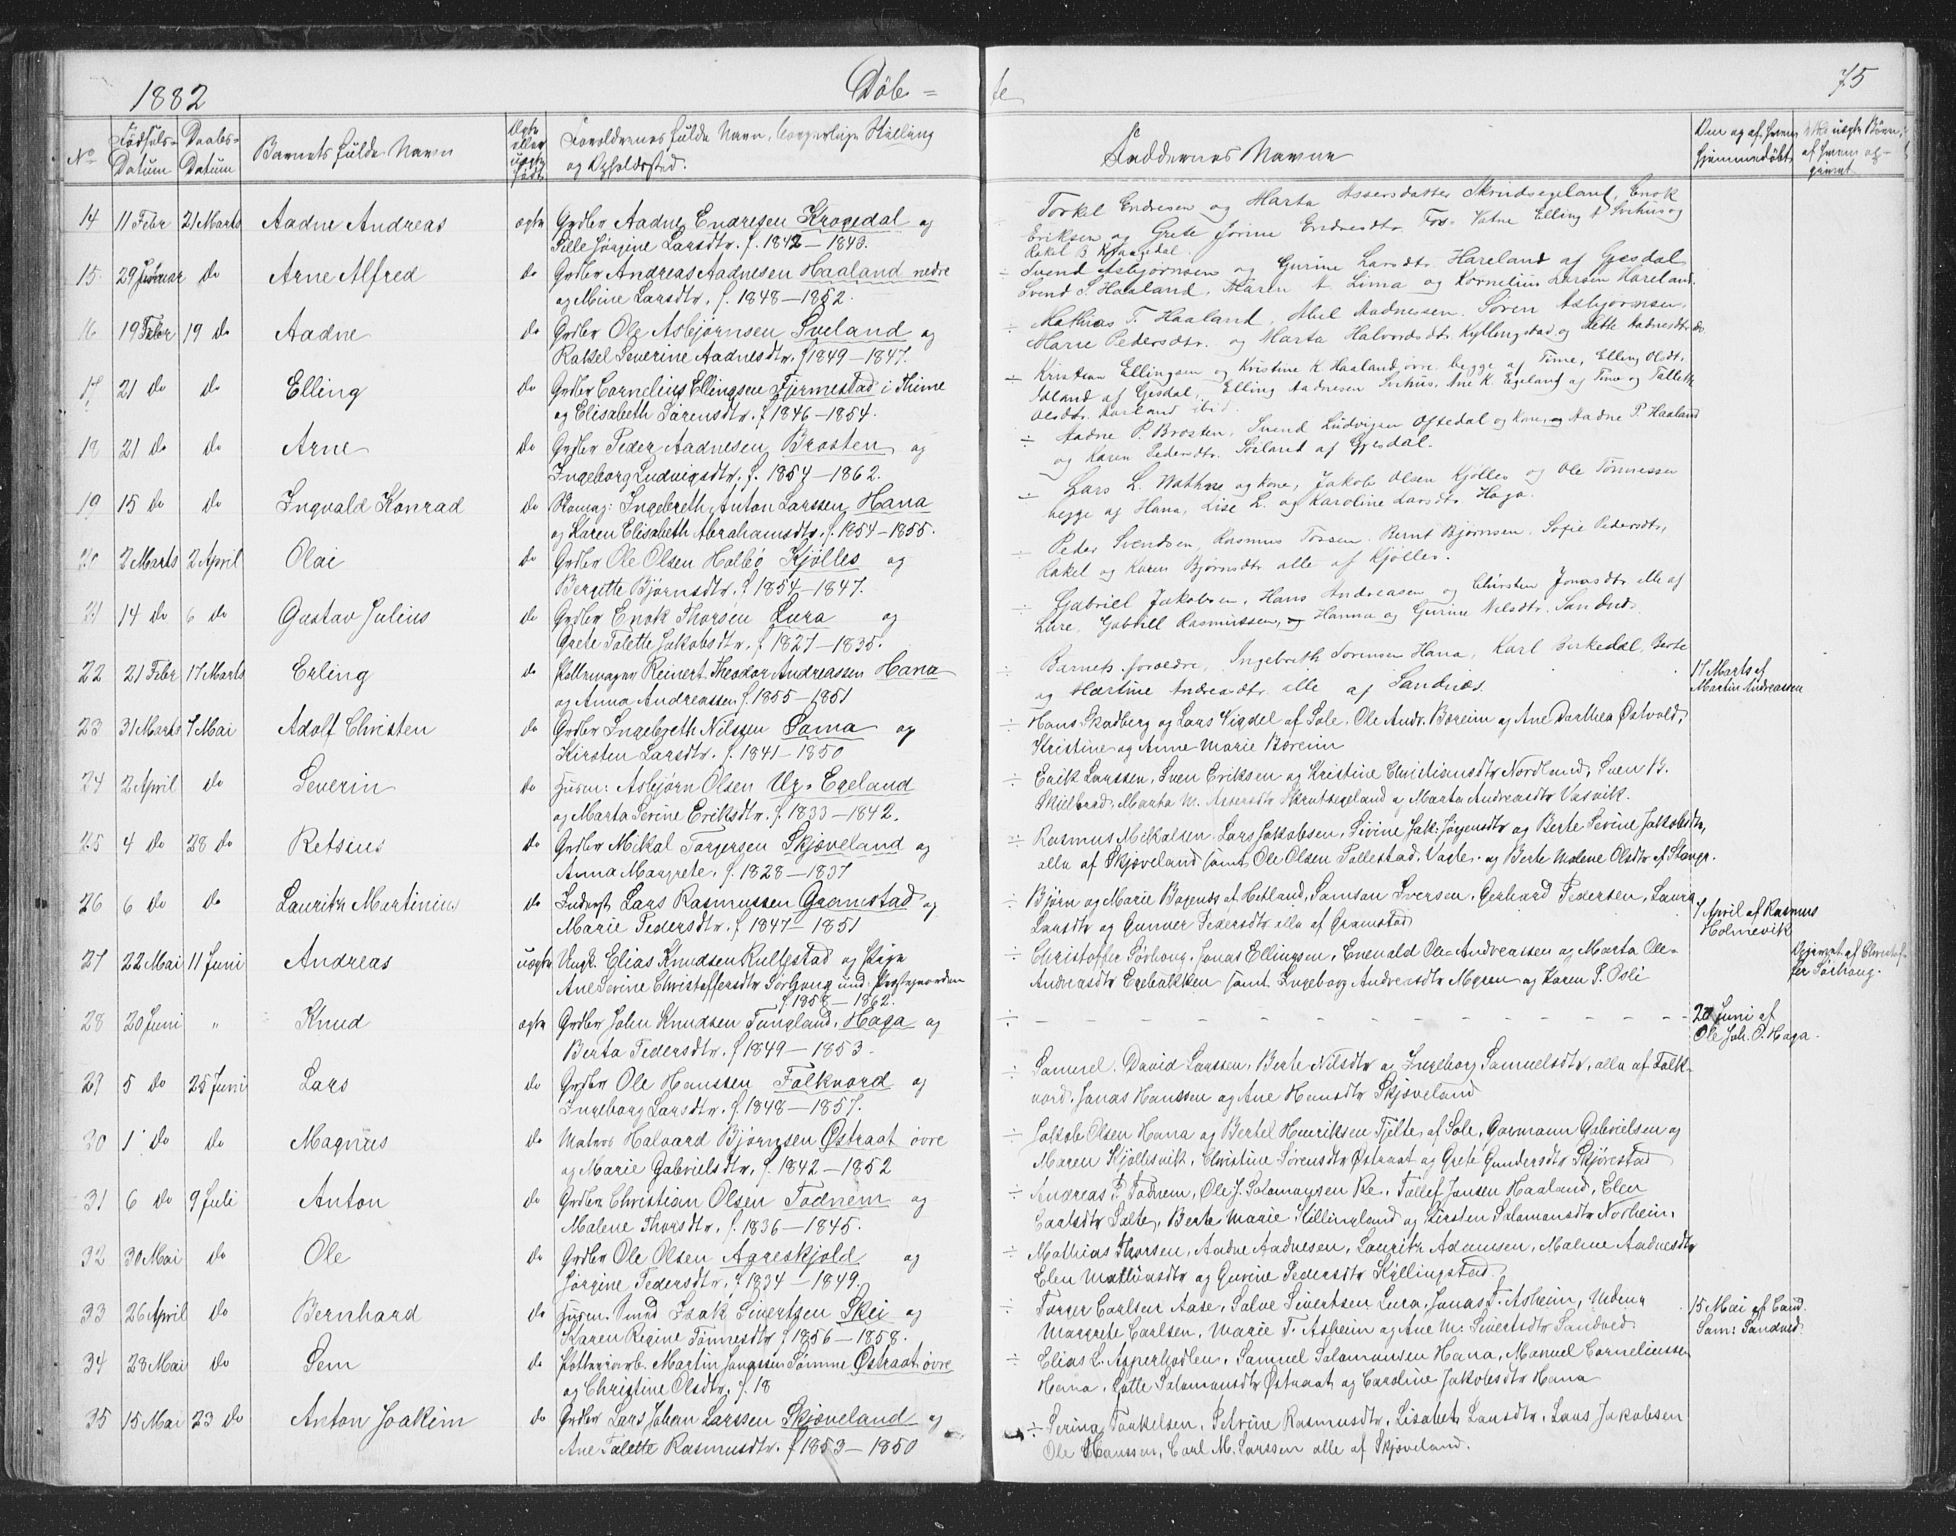 1882 Döb= te 75
No Födsels-Datum Daabs-Datum Barnets fulde Navn Ægte eller uægte födt Forældrenes fulde Navn, borgerlige Stilling og Opholdssted. Faddernes Navne Om og af hvem hjemmedöbt
14 11 Febr 21 Marts Aadne Andreas ægte Grdbr Aadne Endresen Krogedal og
Sille Jørgine Larsdtr. f. 1842 – 1843.
Torkel Endresen og Marta Assersdatter Skrudsegeland, Enok
Eriksen og Grete Jorine Endresdtr. Fos-Vatne Elling
Rakel B. Kraagedal.
15. 29 Januar do Arne Alfred do Grdbr Andreas Aadnesen Haaland nedre
og Mine Larsdtr. f. 1848 – 1852.
÷ Svend Asbjørnsen og Gurine Larsdtr Hareland af Gjesdal
Svend S. Haaland, Maren A. Lima og Kornelius Larsen Hareland.
16 19 Febr 19 do Aadne do Grdbr Ole Asbjørnsen Sveland og
Rakel Severine Aadnesdtr. f 1849 – 1847.
÷ Mathias T. Haaland, Abel Aadnessen, Sören Asbjørnsen,
Marie Pedersdtr. og Marta Halvordsdtr Kyllingstad og Lette Aadnesdtr do
17 21 do do Elling do Grdbr Cornelius Ellingsen Fjermestad i Thime
og Elisabeth Sørensdtr. f 1846 – 1854.
÷ Kristian Ellingsen og Kristine K. Haaland övre begge af Time, Elling Olsdtr.
Idland af Gjesdal, Elling Aadnesen Svihus, Ane K. Egeland af Time og Tallette
Olsdtr. Aarland ibid.
18 21 do do Arne do Grdbr Peder Aadnesen Brosten og
Ingeborg Ludvigsdtr. f. 1857 – 1862.
÷ Aadne P. Brosten, Svend Ludvigsen Oftedal og Kone og Aadne P. Haaland
og Karen Pedersdtr. Sörland af Gjesdal.
19 15 do do Ingvald Konrad do Ingebreth Anton Larssen Hana
og Karen Elisabeth Abrahamsdtr. f. 1854 – 1855.
÷ Lars L. Wathne og Kone, Jakob Olsen Kjölles og Ole Tönnessen
begge af Hana, Lise L. og Karoline Larsdtr Haga.
20 2 Marts 2 April Olai do Grdbr Ole Olsen Holbö Kjölles og
Bergitte Bjørnsdtr. f 1854 – 1847.
÷ Peder Svendsen, Rasmus Torsen, Bernt Bjørnsen, Sofie Pedersdtr,
Rakel og Karen Bjørnsdtr alle af Kjölles.
21 14 do 6 do Gustav Julius do Grdbr Enok Thorsen Lura og
Grete Talette Jakobsdtr. f 1827 – 1835.
÷ Gabriel Jakobsen, Hans Andreasen og Christen Jonasdtr alle af
Lure, Gabriell Rasmussen, og Hanna og Gurine Nilsdtr. Sandnes.
22 21 Febr 17 Marts Erling do Pottemager Reinert Theodor Andreassen Hana
og Anna Andreassen f 1855 – 1851
÷ Barnets forældre, Ingebreth Sörensen Hana, Karl Birkedal, Berte
og Martine Andreasdtr. alle af Sandnæs.
17 Marts af
Martin Andreassen
23 31 Marts 7 Mai Adolf Christen do Grdbr Ingebreth Nilssen Soma og
Kirsten Larsdtr. f. 1841 – 1850
÷ Hans Skadberg og Lars Vigdel af Sole, Ole Andr. Bæreim og Ane Dorthea Østvold,
Kristine og Anne Marie Bæreim
24 2 April do Severin do Husm: Asbjørn Olsen Ur. Egeland
og Marta Serine Eriksdtr. f. 1833 – 1842.
÷ Erik Larssen, Sven Eriksen og Kristine Christiansdtr Nordland, Sven B.
Skjelbred, Marta M. Assersdtr Skrutsegeland og Marta Andreasdtr Vasvik.
25 4 do 28 do Retsius do Grdbr Mikal Torgersen Skjæveland og
Anna Margrete, f. 1828 – 1837
÷ Rasmus Mikalsen, Lars Jakobsen, Sivine Jak: Jørgensdtr og Berte Sevine Jakobsdtr,
alle af Skjæveland samt Ole Olsen Tollestad, Vagle og Berte Malene Olsdtr af Stangl.
26 6 do do Lauritz Martinius do Inderst Lars Rasmussen Gramstad og
Marie Pedersdtr. f 1847 – 1851
÷ Björn og Marie Bogenes af Hetland, Samson Iversen, Gerhard Pedersen, Laura
Larsdtr og Gunner Pedersdtr alle af Gramstad
7 April af Rasmus
Holmevik
27 22 Mai 11 Juni Andreas uægte Ungk. Elias Knudsen Rullestad og Pige
Ane Serine Christoffersdtr Sørhoug und. Præstegaarden
f. 1858 – 1862.
÷ Christoffer Sörhoug, Jonas Ellingsen, Enevald Ole Andreassen og Marta Ole-
Andreasdtr Egebakken samt Ingeborg Andreasdtr Myren og Karen P. Osli
Opgivet af Christof-
fer Sørhaug.
28 20 Juni " Knud ægte Grdbr John Knudsen Tungland, Haga og
Berta Pedersdtr. f 1849 – 1853.
÷ – – – – – – – – – – – – – – –
20 Juni af
Ole Joh. O. Haga.
29 5 do 25 Juni Lars do Grdbr Ole Hanssen Folkvord og
Ingeborg Larsdtr. f. 1848 – 1857.
÷ Samuel David Larssen, Berte Nilsdtr og Ingeborg Samuelsdtr, alle af Folk-
vord. Jonas Hanssen og Ane Hansdtr Skjæveland
30 1 do do Magnus do Matros Halvard Bjørnsen Østraat övre
og Marie Gabrielsdtr, f. 1842 – 1852
÷ Jakob Olsen Hana og Bertel Henriksen Tjelte af Sole, Garmann Gabrielsen og
Maren Kjöllesvik, Christine Sørensdtr Østraat og Grete Gundersdtr Skjörestad
31 6 do 9 Juli Anton do Grdbr Christian Olsen Todnem og
Malene Thorsdtr. f. 1836 – 1845.
÷ Andreas P. Todnem, Ole J. Salamonsen Re, Tollef Jansen Haaland, Elen
Carlsdtr Salte, Berte Marie Killingland og Kirsten Salamonsdtr Norheim.
32 30 Mai do Ole do Grdbr Ole Olsen Agreskjold og
Jørgine Pedersdtr. f 1834 – 1849.
÷ Mathias Thorsen, Aadne Aadnesen, Lauritz Adamsen, Malene Aadnesdtr
Elen Mathiasdtr og Gurine Pedersdtr Kyllingstad.
33 26 April do Bernhard do Husm. Smed Isak Sivertsen Skei og
Karen Regine Tönnesdtr f 1856 – 1858.
÷ Torger Carlsen Aase, Salve Sivertsen Lura, Jonas T. Asheim,
Margrete Carlsen, Marie T. Asheim og Ane M. Sivertsdtr Sandved.
15 Mai af Cand.
Sam: Sandved
34 28 Mai do Sem do Potteriarb. Martin Jonassen Sömme Østraat övre
og Christine Olsdtr. f. 18
÷ Elias L. Asperhodlen, Samuel Salamonsen Hana, Manuel Corneliussen
Hana, Lotte Salamonsdtr Østraat og Caroline Jakobsdtr Hana
35 15 Mai 23 do Anton Joakim do Grdbr Lars Johan Larssen Skjæveland og
Ane Talette Rasmusdtr. f 1853 – 1850
÷ Serina Torkelsen, Petrine Rasmusdtr, Lisabet Larsdtr, Lars Jakobsen
Ole Hanssen, Carl M. Larssen alle af Skjæveland.